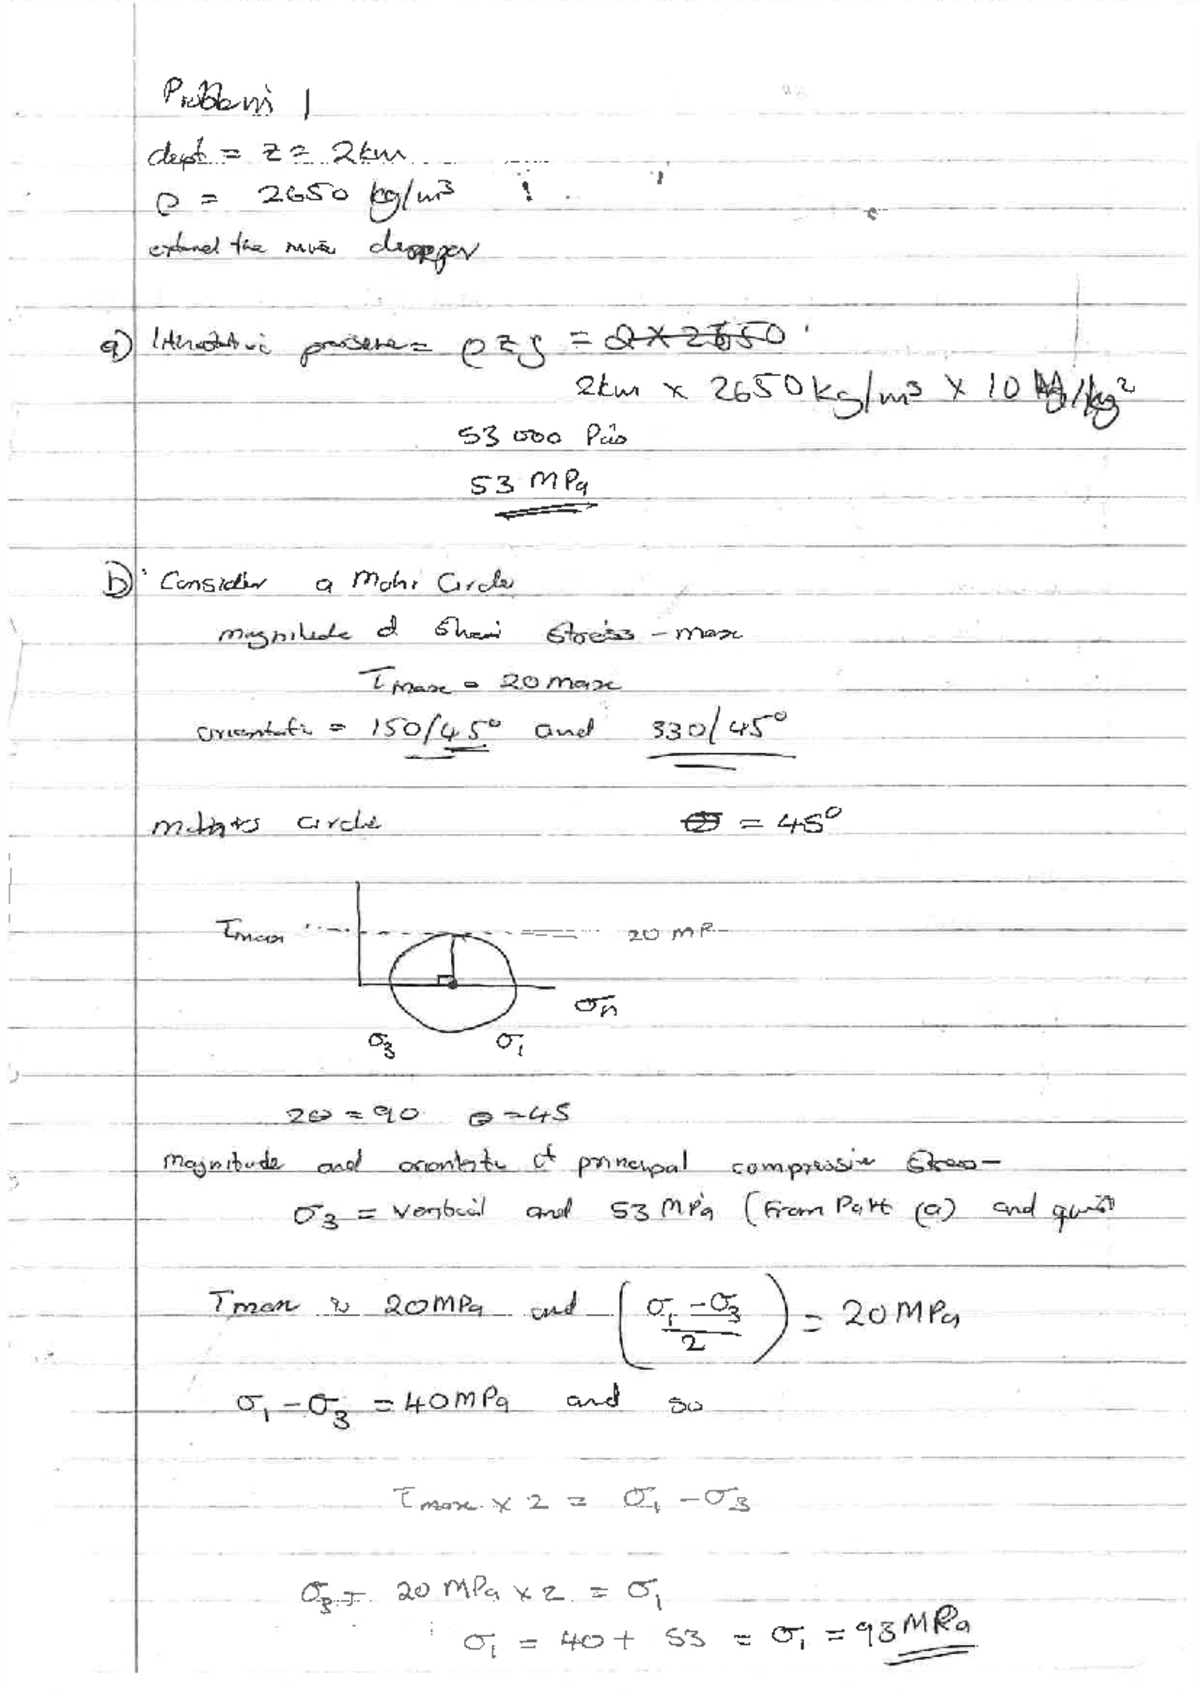 Problem 1
dept = z = 2km
ρ = 2650 kg/m³
a) pressure = ρzg = 2×2650
2km × 2650kg/m³ × 10
53 000 Pas
53 MPa
b) Consider a Mohr Circle
magnitude of Shear Stress - max
Tmax = 20 max
orientati = 150/45° and 330/45°
circle = 45°
Tmax 20 MP
σn
σ3 σ1
2θ = 90 θ = 45
Magnitude and orientati of principal compressive Stress -
σ3 = vertical and 53 MPa (from Part (a) and
Tmax ≈ 20MPa and (σ1 - σ3 / 2) = 20MPa
σ1 - σ3 = 40MPa and so
Tmax × 2 = σ1 - σ3
σ3 + 20 MPa × 2 = σ1
σ1 = 40 + 53 = σ1 = 93 MPa